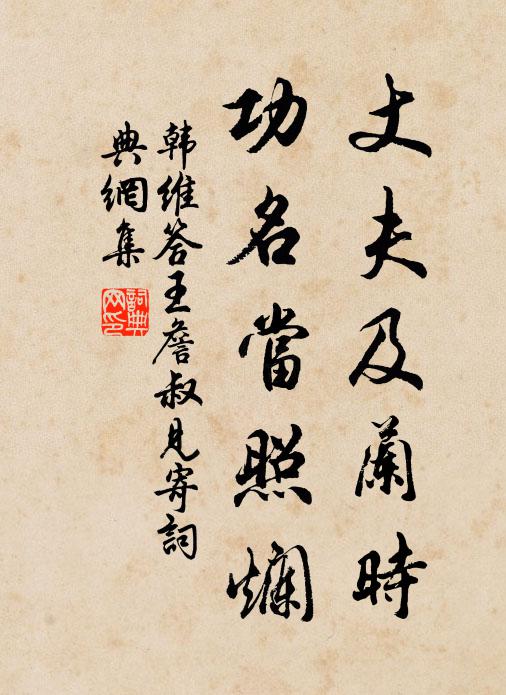 丈夫及蘭時
功名當照爛
韩維答王詹叔見寄詞
典網集
詞典网印